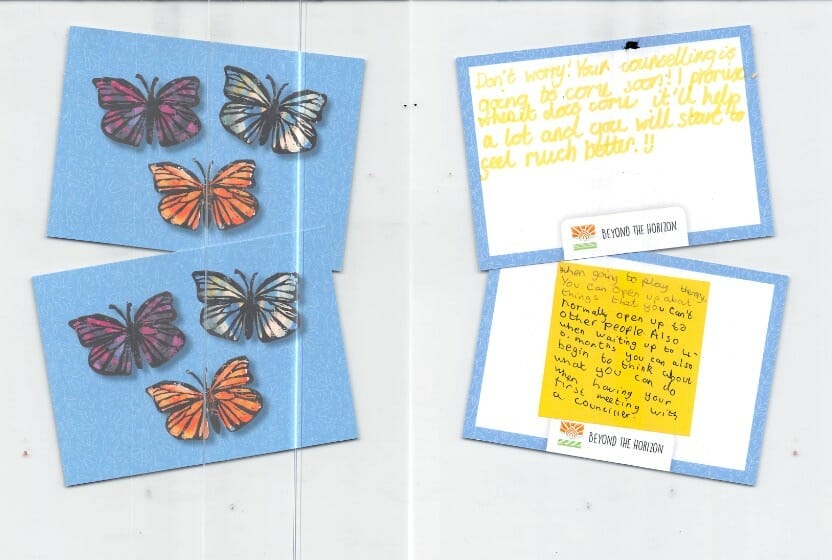 Don't worry! Your counselling is
going to come soon! I promise
when it does come it'll help
a lot and you will start to
feel much better.!!
BEYOND THE HORIZON
when going to play therapy
You can open up about
things that you can't
normally open up to
other people Also
when waiting up to 4-
6. months you can also
begin to think about
what you can do
when having your
first meeting with
a counciller.
BEYOND THE HORIZON